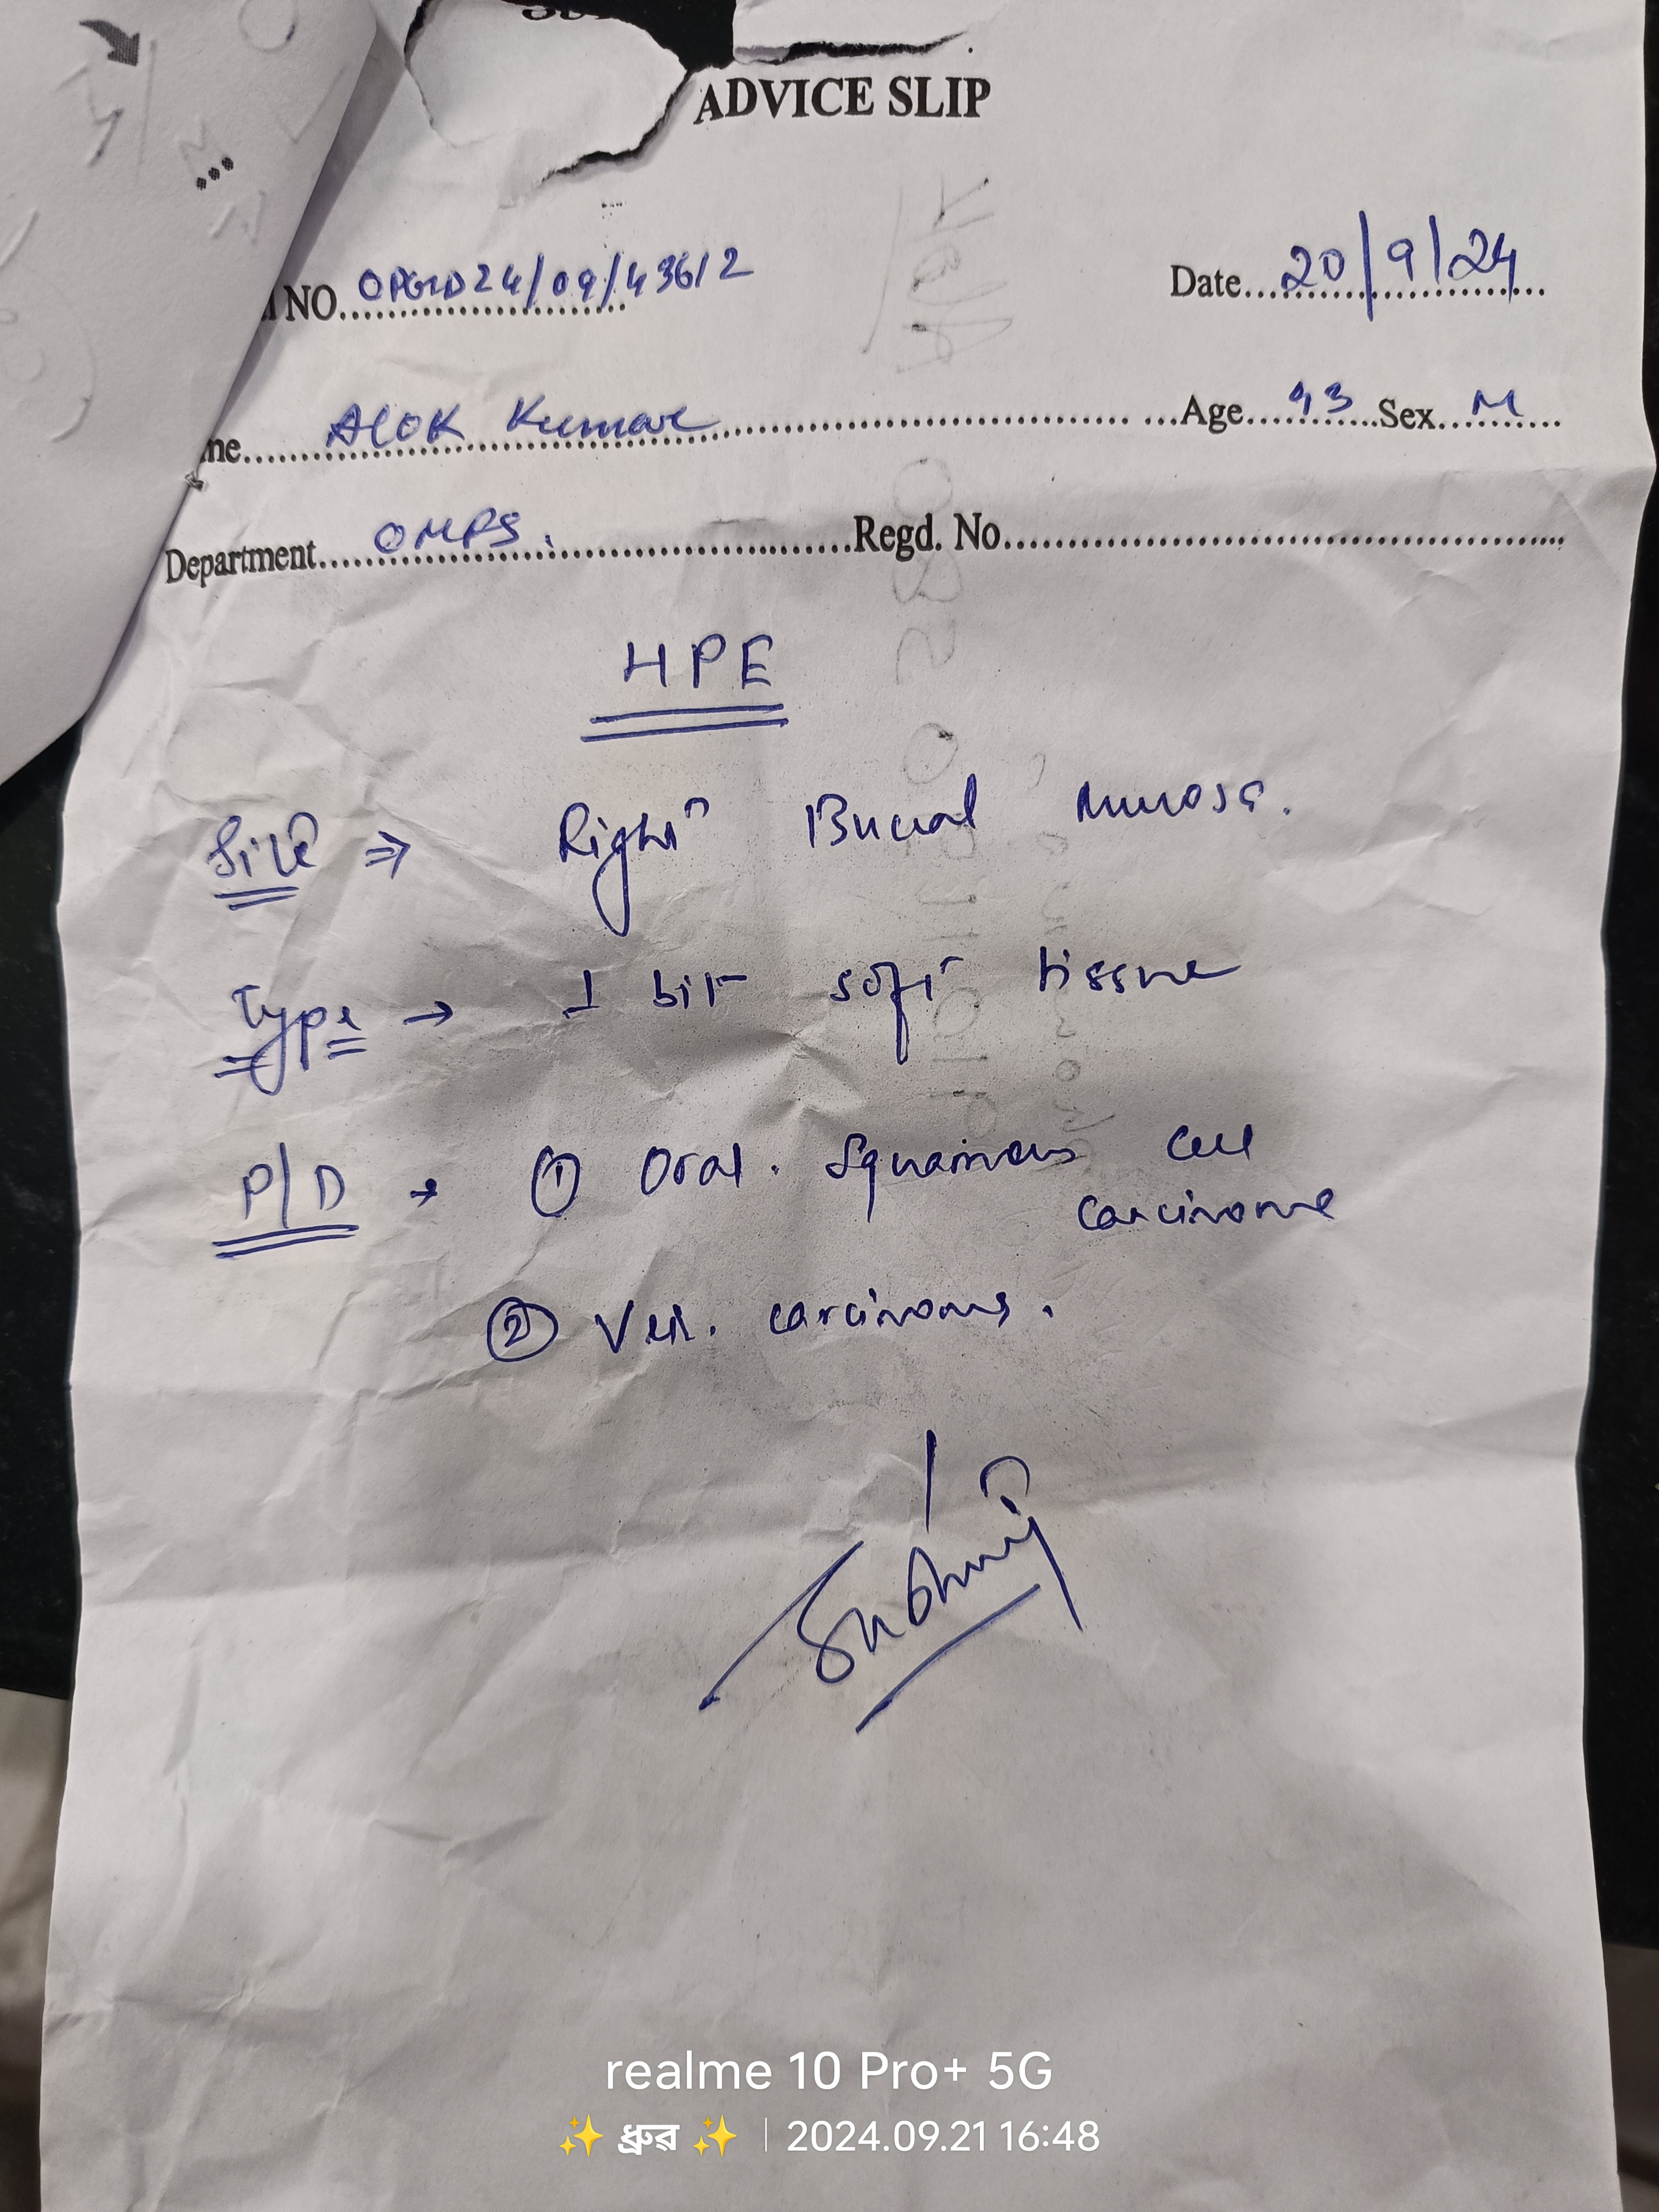 ADVICE SLIP
NO. OPGID24/09/43612 Date 20/9/24
me Alok Kumar Age 43 Sex M
Department OMFS. Regd. No
HPE
Site ⇒ Right Buccal Mucosa.
Type → 1 bit soft tissue
P/D → ① Oral. Squamous cell
carcinoma
② Ver. carcinoma.
realme 10 Pro+ 5G
✨ ধ্রুৱ ✨ | 2024.09.21 16:48